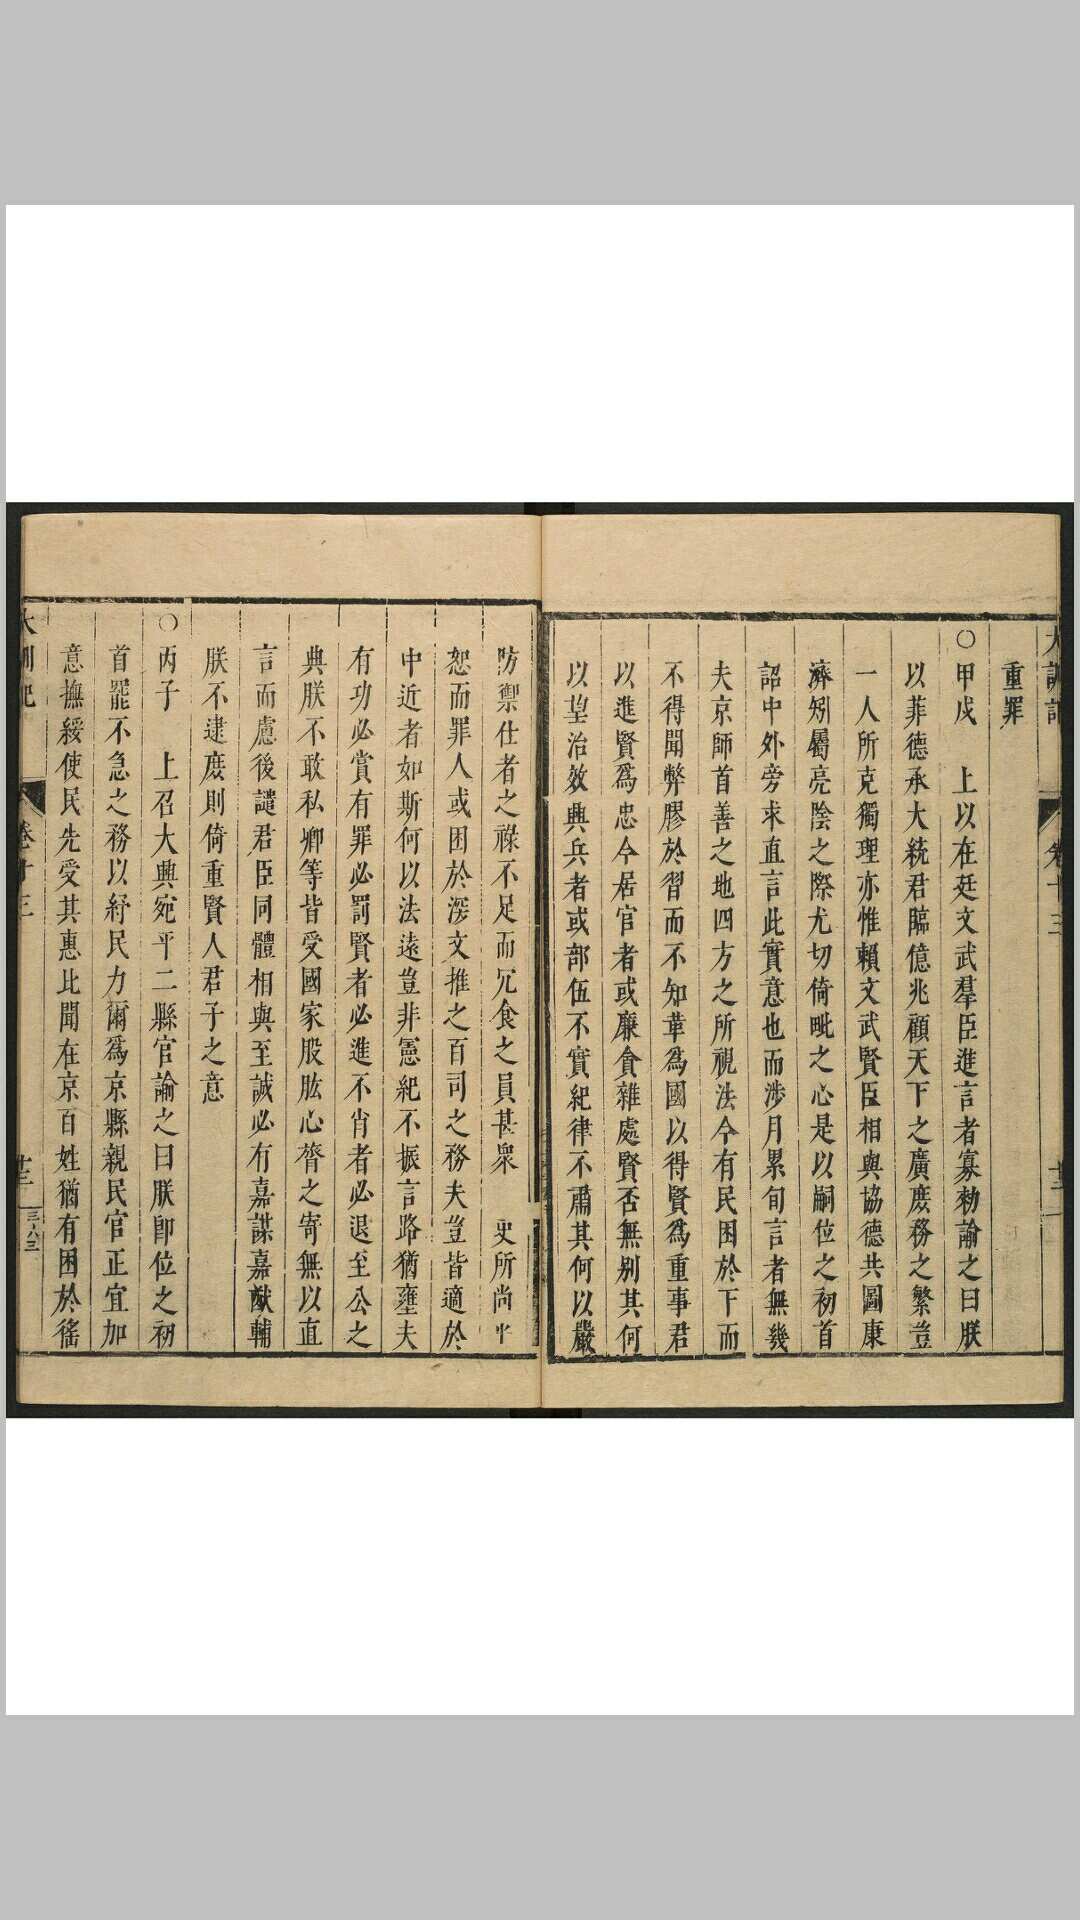 大訓記 卷十三
重罪
○甲戌 上以在廷文武羣臣進言者寡勑諭之曰朕
以菲德承大統君臨億兆顧天下之廣庶務之繁豈
一人所克獨理亦惟賴文武賢臣相與協德共圖康
濟矧屬亮陰之際尤切倚毗之心是以嗣位之初首
詔中外旁求直言此實意也而涉月累旬言者無幾
夫京師首善之地四方之所視法今有民困於下而
不得聞弊膠於習而不知革為國以得賢為重事君
以進賢為忠今居官者或廉貪雜處賢否無别其何
以望治效典兵者或部伍不實紀律不肅其何以嚴
防禦仕者之祿不足而冗食之員甚衆 吏所尚
恕而罪人或困於深文推之百司之務夫豈皆適於
中近者如斯何以法遠豈非憲紀不振言路猶壅夫
有功必賞有罪必罰賢者必進不肖者必退至公之
典朕不敢私卿等皆受國家股肱心膂之寄無以直
言而慮後譴君臣同體相與至誠必有嘉謀嘉猷輔
朕不逮庶則倚重賢人君子之意
○丙子 上召大興宛平二縣官諭之曰朕卽位之初
首罷不急之務以紓民力爾為京縣親民官正宜加
意撫綏使民先受其惠比聞在京百姓猶有困於徭
大訓記 卷十三